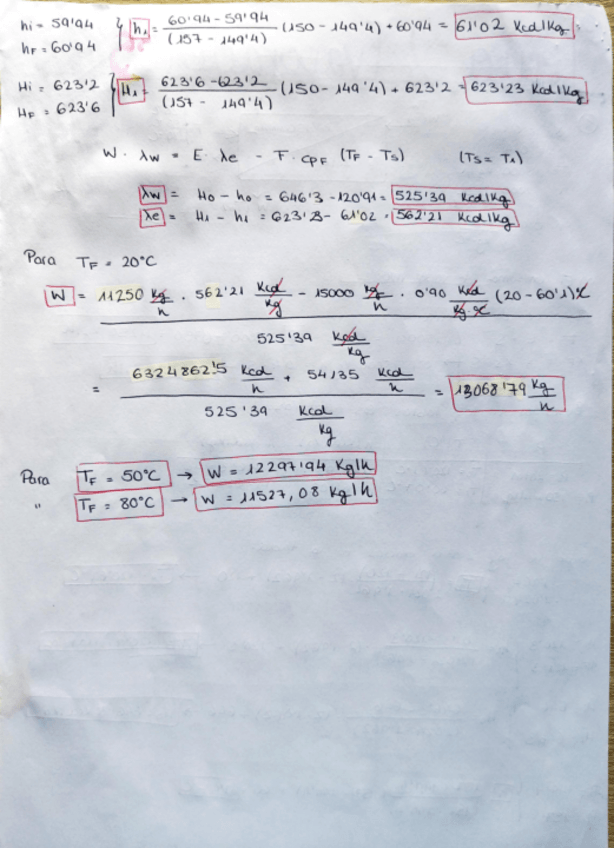 hi = 59'94
hF = 60'94
h1 = (60'94 - 59'94)/(157 - 149'4) (150 - 149'4) + 60'94 = 61'02 Kcal/Kg
Hi = 623'2
HF = 623'6
H1 = (623'6 - 623'2)/(157 - 149'4) (150 - 149'4) + 623'2 = 623'23 Kcal/Kg
W · λw = E · λe - F · cpF (TF - Ts) (Ts = T1)
λw = H0 - h0 = 646'3 - 120'91 = 525'39 Kcal/Kg
λe = H1 - h1 = 623'23 - 61'02 = 562'21 Kcal/Kg
Para TF = 20°C
W = 11250 Kg/h · 562'21 Kcal/Kg - 15000 Kg/h · 0'90 Kcal/Kg·ºC (20 - 60'1)ºC
525'39 Kcal/Kg
= 6324862'5 Kcal/h + 54135 Kcal/h = 13068'79 Kg/h
525'39 Kcal/Kg
Para TF = 50°C → W = 12297'94 Kg/h
" TF = 80°C → W = 11527,08 Kg/h